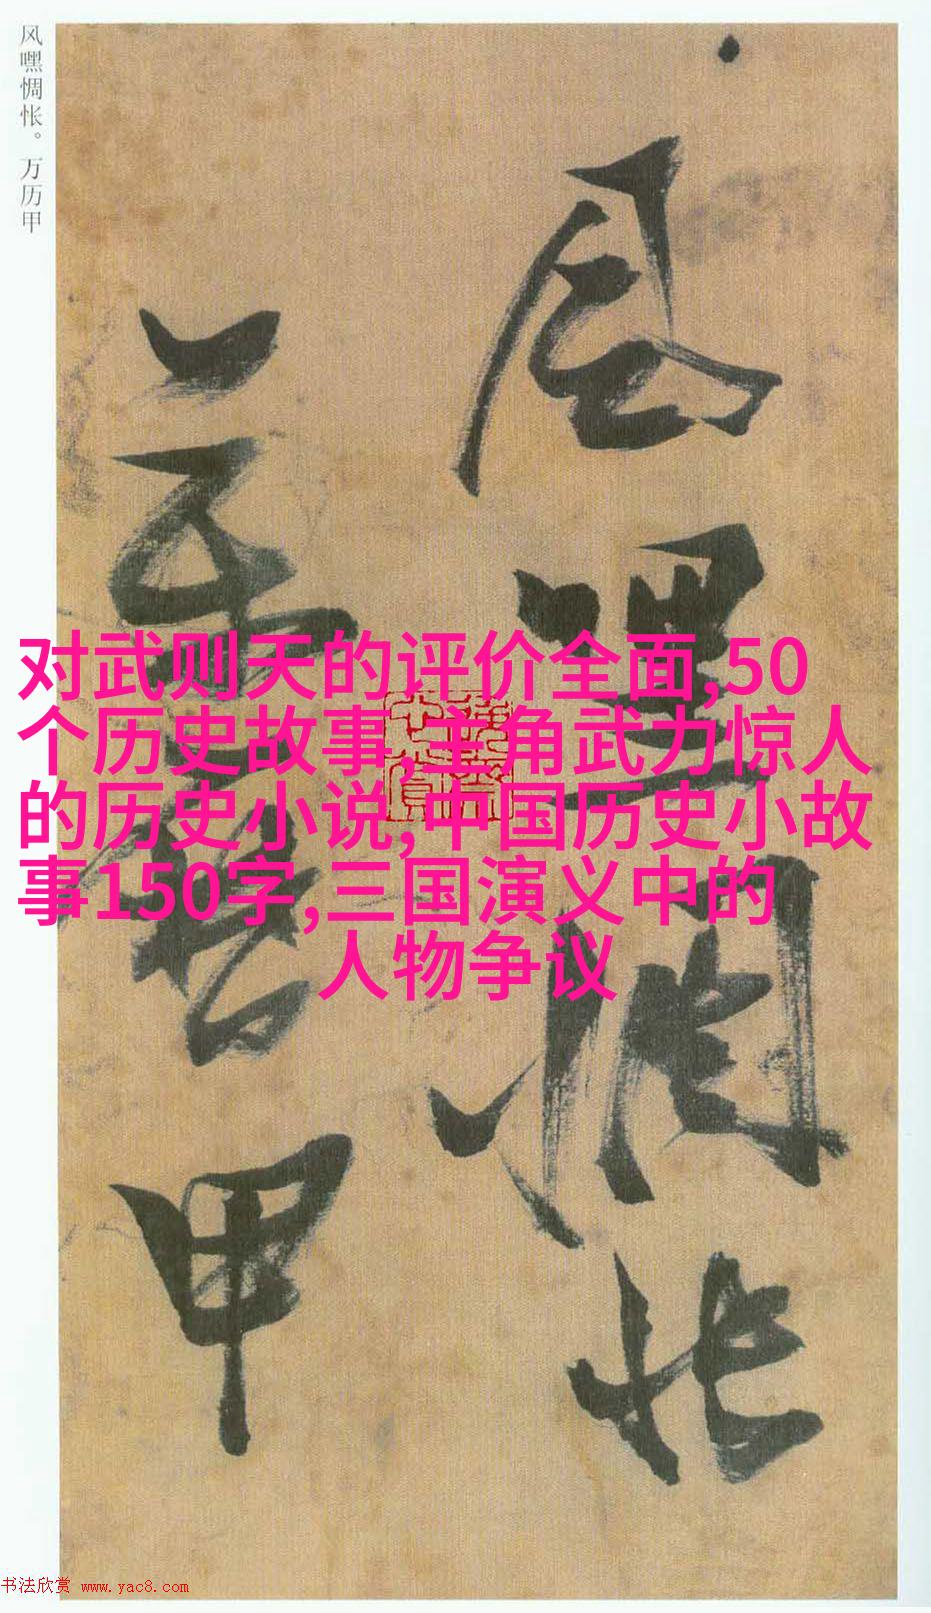 风嘿惆怅。万历甲
风
嘿
惆
怅
万
历
甲
对武则天的评价全面,50
个历史故事,主角武力惊人
的历史小说,中国历史小故
事150字,三国演义中的
人物争议
书法欣赏 www.yac8.com